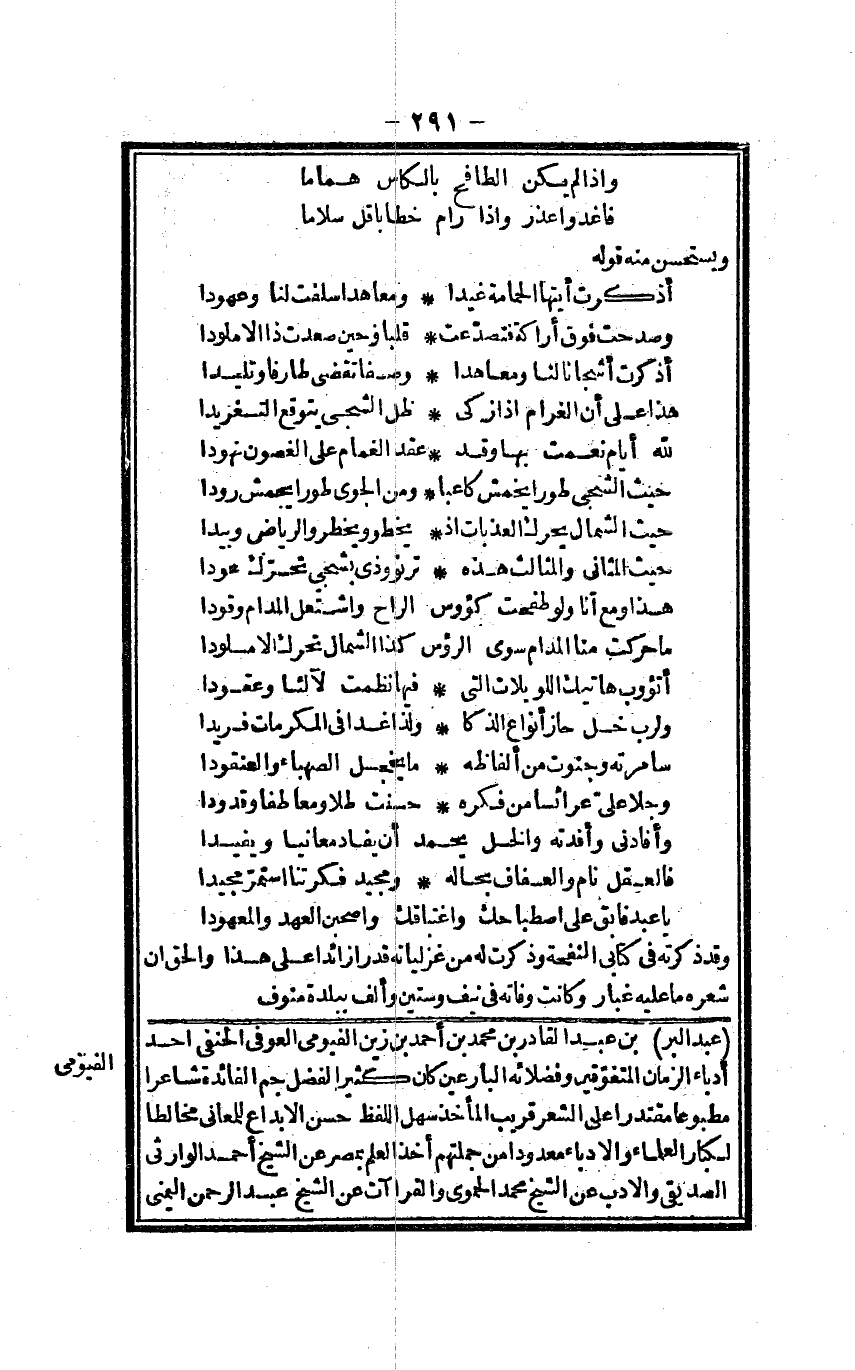 - ٢٩١ -
واذالم يكن الطافح بالكاس هماما
فاغد واعذر واذا رام خطابا قل سلاما
ويستحسن منه قوله
أذكرت أيتها الحمامة غيدا * ومعاهدا سلفت لنا وعهودا
وصدحت فوق أراكة فتصدّعت * قلبا وحين صعدت ذا الاملودا
أذكرت أشجانا لنا ومعاهدا * وصفا تقضى طارفا وتليدا
هذا على أن الغرام اذا زكى * ظل الشجى يتوقع التغريدا
لله أيام نعمت بها وقد * عقد الغمام على الغصون نهودا
حيث الشجى طورا يخمش كاعبا * ومن الجوى طورا يجمش رودا
حيث الشمال يحرك العذبات اذ * يخطو ويخطر والرياض وبيدا
حيث المثانى والمثالث هذه * ترنو وذى بشجى تحرّك عودا
هذا ومع آنا ولو طفحت كؤوس الراح واشتعل المدام وقودا
ما حركت منا المدام سوى الرؤس كذا الشمال تحرك الاملودا
أتؤوب هاتيك اللويلات التى * فيها نظمت لآلئا وعقودا
ولرب خل حاز أنواع الذكا * ولذا غدا فى المكرمات فريدا
سامرته وجنوت من ألفاظه * ما يفعل الصهباء والعنقودا
وجلا علىّ عرائسا من فكره * حسنت طلا ومعاطفا وقدودا
وأفادنى وأفدته والخل يحمد أن يفاد معانيا ويفيدا
فالعقل نام والعفاف بحاله * ومجيد فكرتنا استمرّ مجيدا
يا عبد فابق على اصطباحك واغتباقك واصحبن العهد والمعهودا
وقد ذكرته فى كتابى النفحة وذكرت له من غزلياته قدرا زائدا على هذا والحق ان
شعره ما عليه غبار وكانت وفاته فى نيف وستين وألف ببلدة منوف
(عبد البر) بن عبد القادر بن محمد بن أحمد بن زين الفيومى العوفى الحنفى احد
الفيومى
أدباء الزمان المتفوّقين وفضلائه البارعين كان كثير الفضل جم الفائدة شاعرا
مطبوعا مقتدرا على الشعر قريب المأخذ سهل اللفظ حسن الابداع للمعانى مخالطا
لكبار العلماء والادباء معدودا من جملتهم أخذ العلم بمصر عن الشيخ أحمد الوارثى
الصديقى والادب عن الشيخ محمد الحموى والقراآت عن الشيخ عبد الرحمن اليمنى